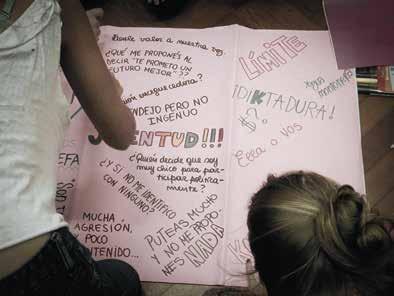 Danle valor a nuestra voz.
¿QUÉ ME PROPONÉS AL
DECIR "TE PROMETO UN
FUTURO MEJOR"??
PENDEJO PERO NO
INGENUO
JUVENTUD!!!
¿Quién decide que soy
muy chico para par-
ticipar política-
mente?
¿Y SI NO ME IDENTIFICO
CON NINGUNO?
MUCHA
AGRESIÓN,
Y POCO
CONTENIDO...
PUTEAS MUCHO
Y NO ME PROPO-
NÉS NADA
LÍMITE
DIKTADURA!
$?
Ella o vos